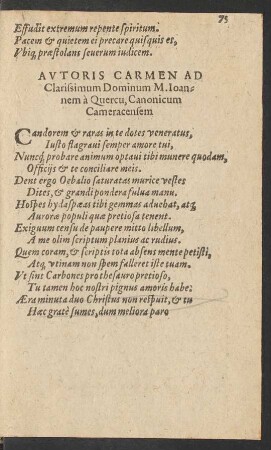 73
Effudit extremum repente spiritum.
Pacem & quietem ei precare quisquis es,
Vbiq, præstolans seuerum iudicem.
AVTORIS CARMEN AD
Clarissimum Dominum M. Ioan-
nem à Quercu, Canonicum
Cameracensem
Candorem & raras in te dotes veneratus,
Iusto flagraui semper amore tui,
Nuncq, probare animum optaui tibi munere quodam,
Officijs & te conciliare meis.
Dent ergo Oebalio saturatas murice vestes
Dites, & grandi pondera fulua manu.
Hospes hydaspæas tibi gemmas aduehat, atq,
Auroræ populi quæ pretiosa tenent.
Exiguum censu de paupere mitto libellum,
A me olim scriptum planius ac rudius.
Quem coram, & scriptis tota absens mente petisti,
Atq, vtinam non spem falleret iste tuam.
Vt sint Carbones pro thesauro pretioso,
Tu tamen hoc nostri pignus amoris habe:
Æra minuta duo Christus non respuit, & tu
Hæc gratè sumes, dum meliora paro